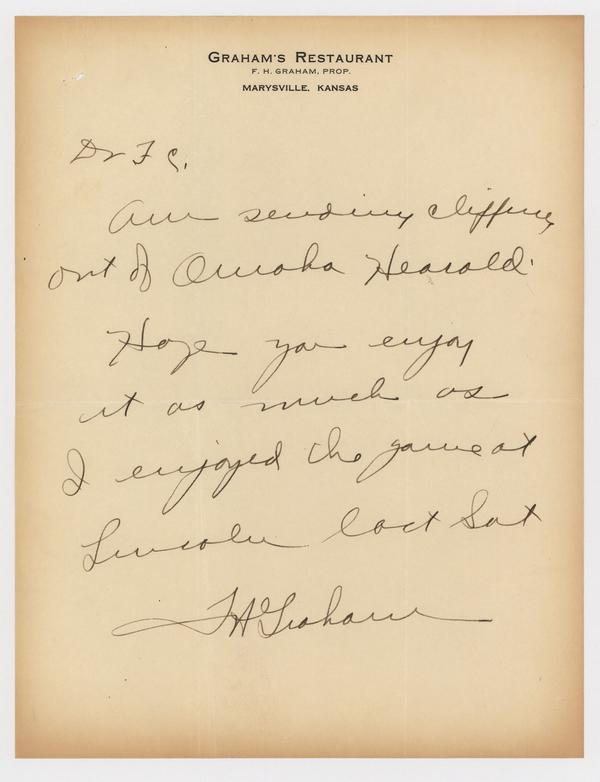 GRAHAM'S RESTAURANT
F. H. GRAHAM, PROP.
MARYSVILLE, KANSAS
Dr F C.
Am sending clipping
out of Omaha Hearald.
Hope you enjoy
it as much as
I enjoyed the game at
Lincoln last Sat
F H Graham